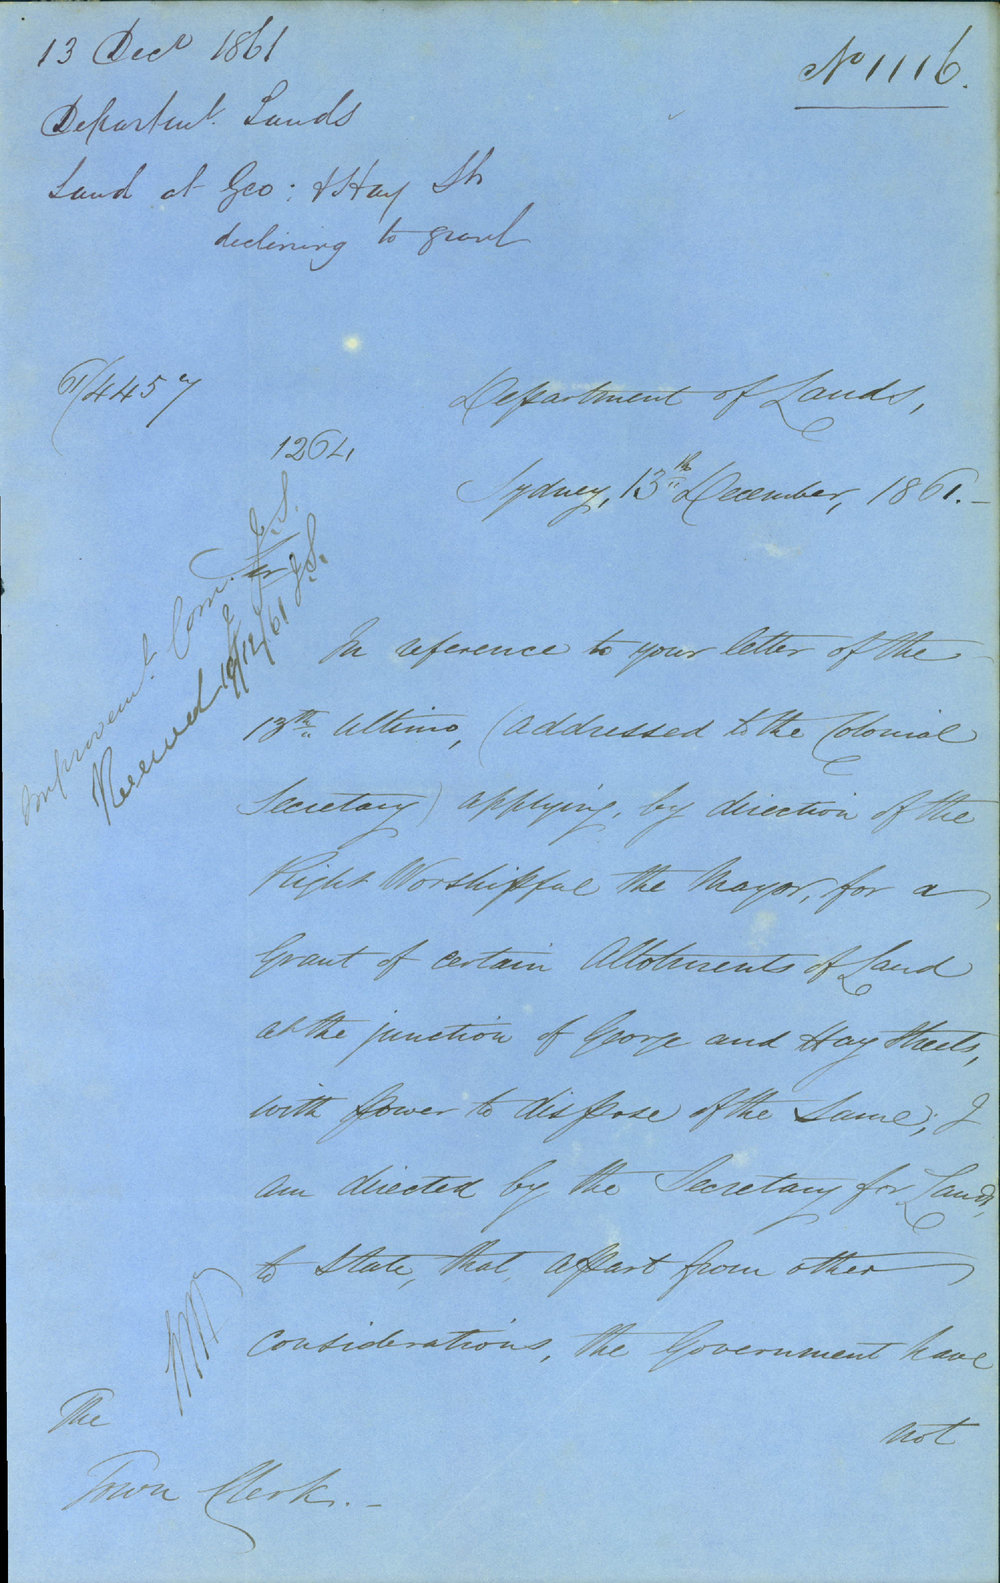 13 Decr 1861
No 1116.
Departmt. Lands
Land at Geo: & Hay Sts
declining to grant
61/4457
Department of Lands,
1264
Sydney, 13th December, 1861.
Sir
Improvemt. Com. J.S.
Received 19/12/61 J.S.
In reference to your letter of the
13th ultimo, (addressed to the Colonial
Secretary) applying, by direction of the
Right Worshipful the Mayor, for a
Grant of certain Allotments of Land
at the junction of George and Hay Streets,
with power to dispose of the same; I
am directed by the Secretary for Lands,
to state, that, apart from other
considerations, the Government have
not
The
Town Clerk.